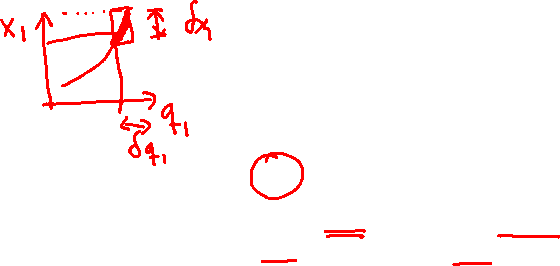 x₁
δx₁
q₁
δq₁